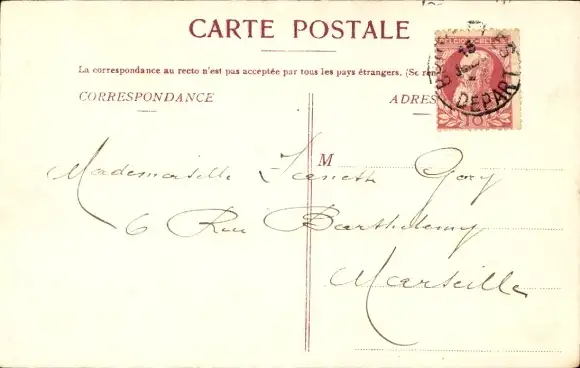 CARTE POSTALE
La correspondance au recto n'est pas acceptée par tous les pays étrangers. (Se ren
CORRESPONDANCE
ADRES
DEPART
15
10
M
Mademoiselle Gory
6 Rue Barthelemy
Marseille